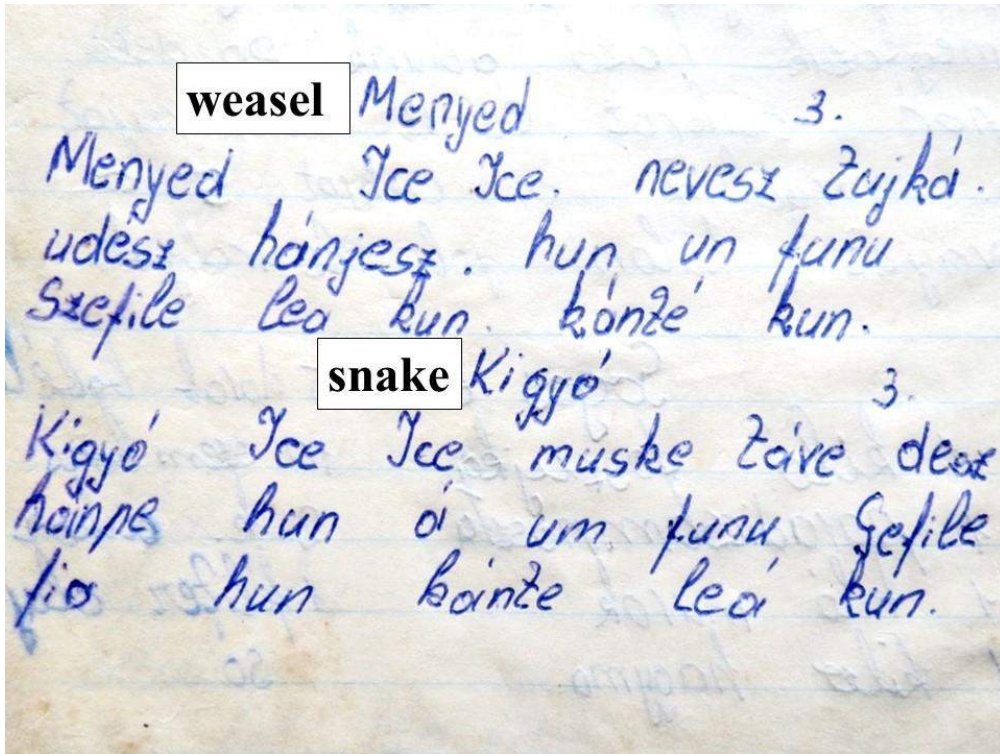 weasel Menyed 3.
Menyed Ice Ice. nevesz Zujká.
udész hánjesz. hun un funu
Szefile leá kun. kánzé kun.
snake Kigyó 3.
Kigyó Ice Ice muske záve desz
hánpe hun á um funu Gefile
fio hun kánze leá kun.